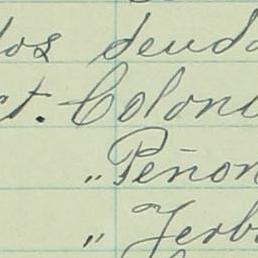 los deuda
ct. Coloni
" Peñon
" Yerb